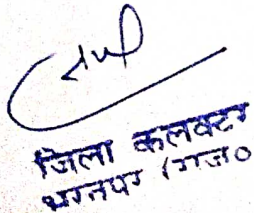 जिला कलक्टर
भरतपर (राज०